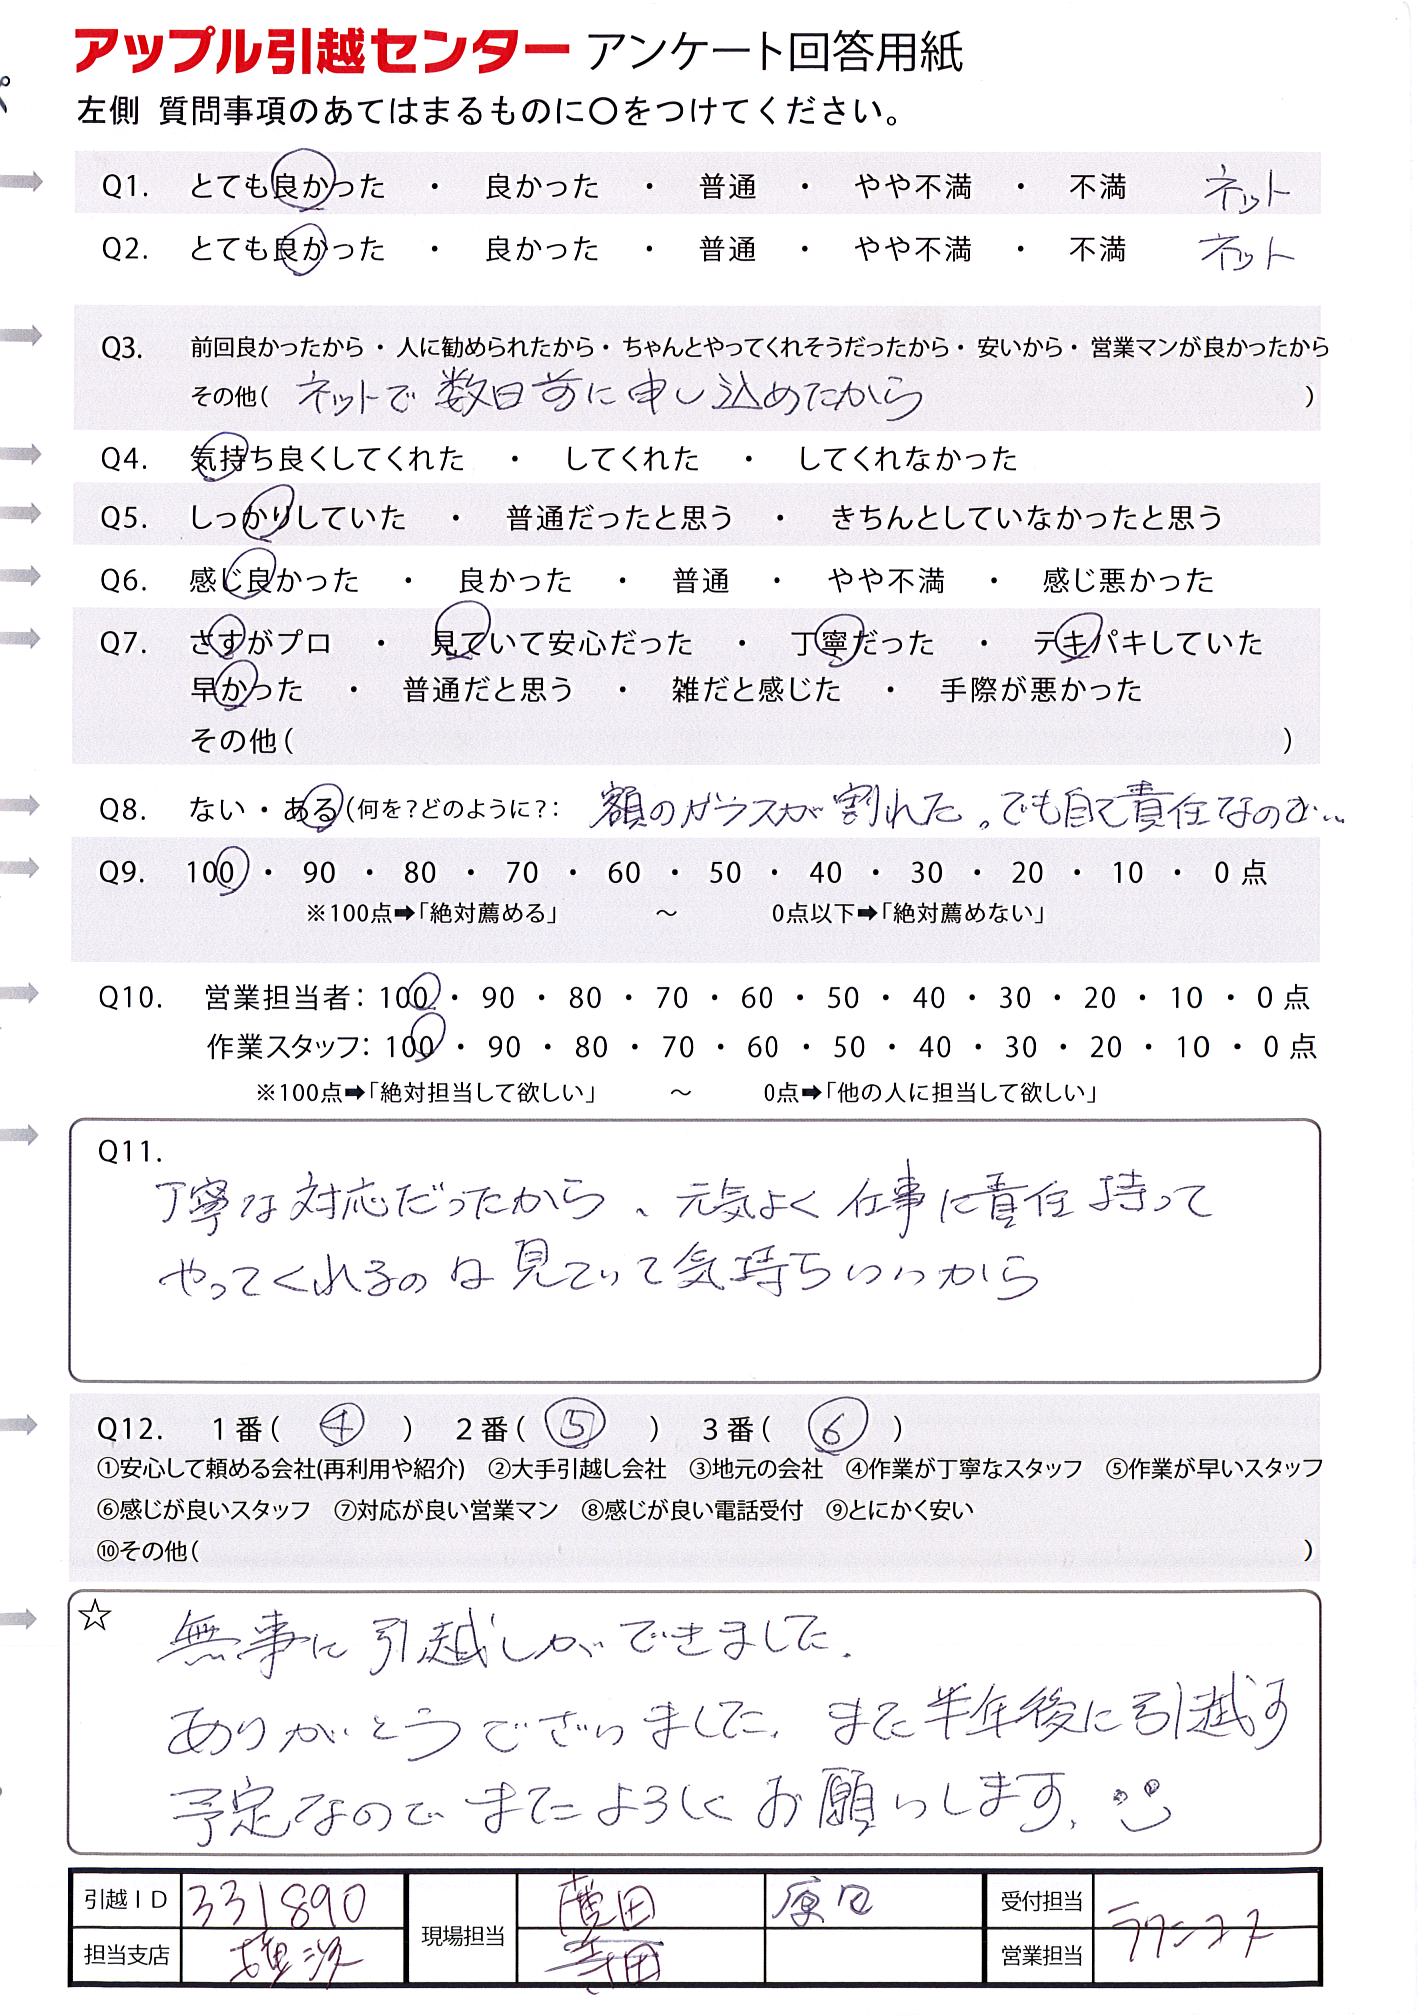 アップル引越センター アンケート回答用紙
左側 質問事項のあてはまるものに〇をつけてください。
Q1. とても良かった ・ 良かった ・ 普通 ・ やや不満 ・ 不満 ネット
Q2. とても良かった ・ 良かった ・ 普通 ・ やや不満 ・ 不満 ネット
Q3. 前回良かったから・人に勧められたから・ちゃんとやってくれそうだったから・安いから・営業マンが良かったから
その他( ネットで数日前に申し込めたから )
Q4. 気持ち良くしてくれた ・ してくれた ・ してくれなかった
Q5. しっかりしていた ・ 普通だったと思う ・ きちんとしていなかったと思う
Q6. 感じ良かった ・ 良かった ・ 普通 ・ やや不満 ・ 感じ悪かった
Q7. さすがプロ ・ 見ていて安心だった ・ 丁寧だった ・ テキパキしていた
早かった ・ 普通だと思う ・ 雑だと感じた ・ 手際が悪かった
その他( )
Q8. ない・ある(何を?どのように?: 額のガラスが割れた。でも自己責任なので…
Q9. 100 ・ 90 ・ 80 ・ 70 ・ 60 ・ 50 ・ 40 ・ 30 ・ 20 ・ 10 ・ 0 点
※100点➡「絶対薦める」 〜 0点以下➡「絶対薦めない」
Q10. 営業担当者: 100・ 90 ・ 80 ・ 70 ・ 60 ・ 50 ・ 40 ・ 30 ・ 20 ・ 10 ・ 0 点
作業スタッフ: 100 ・ 90 ・ 80 ・ 70 ・ 60 ・ 50 ・ 40 ・ 30 ・ 20 ・ 10 ・ 0 点
※100点➡「絶対担当して欲しい」 〜 0点➡「他の人に担当して欲しい」
Q11.
丁寧な対応だったから、元気よく仕事に責任持って
やってくれるのは見ていて気持ちいいから
Q12. 1番( ④ ) 2番( ⑤ ) 3番( ⑥ )
①安心して頼める会社(再利用や紹介) ②大手引越し会社 ③地元の会社 ④作業が丁寧なスタッフ ⑤作業が早いスタッフ
⑥感じが良いスタッフ ⑦対応が良い営業マン ⑧感じが良い電話受付 ⑨とにかく安い
⑩その他( )
☆ 無事に引越しができました.
ありがとうございました. また半年後に引越す
予定なのでまたよろしくお願いします.
引越ID 331890 現場担当 受付担当
担当支店 営業担当